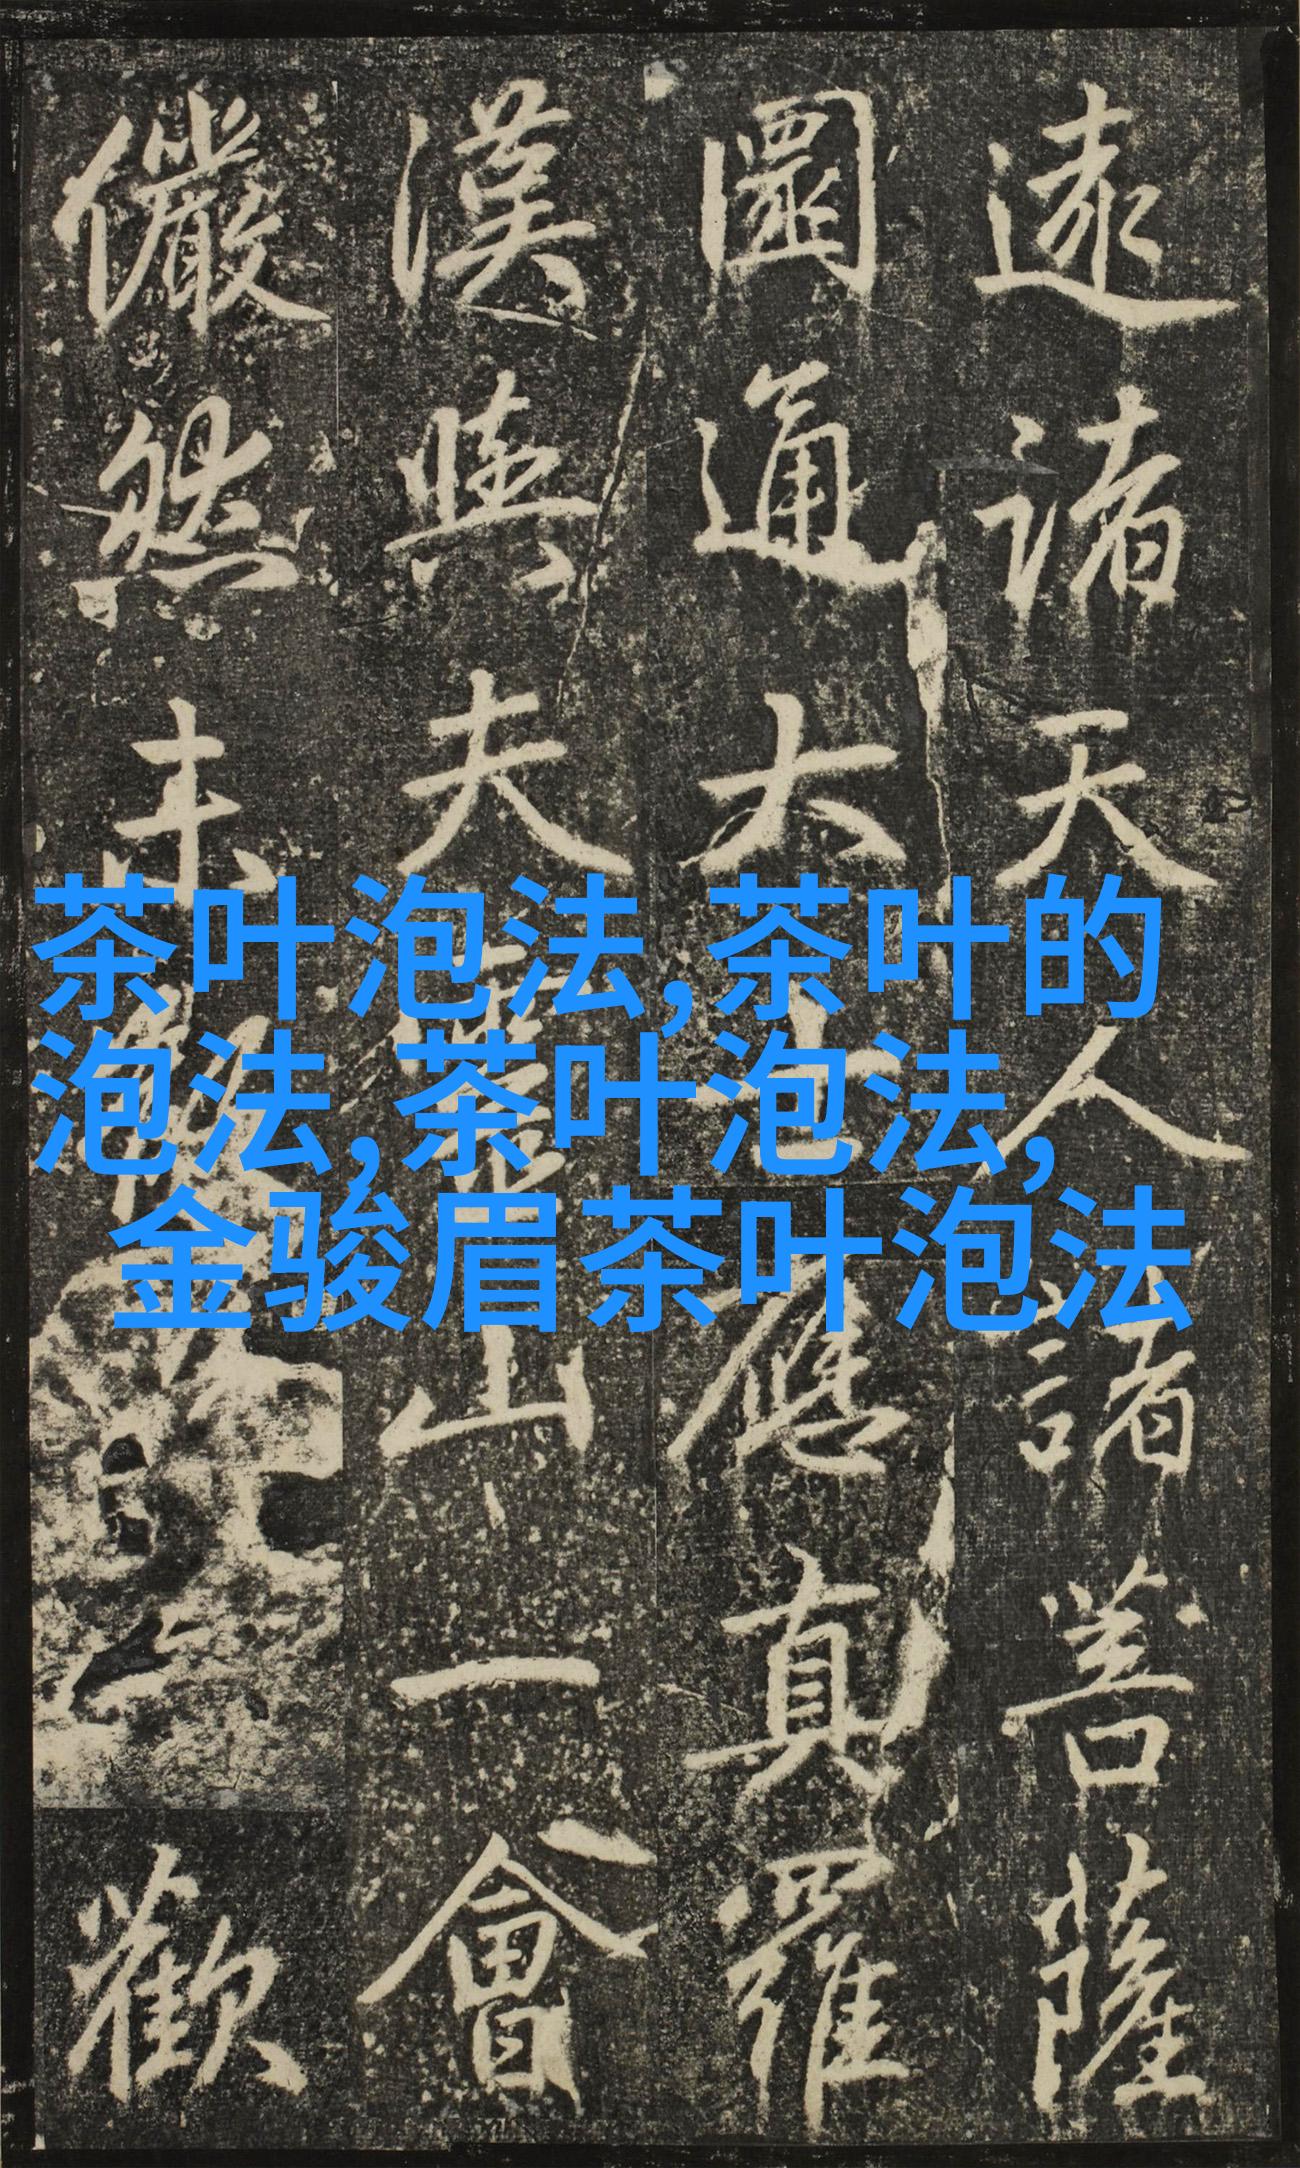 茶叶泡法,茶叶的
泡法,茶叶泡法,
金骏眉茶叶泡法
遠諸天人諸菩薩
圓通大士應真羅
漢與夫靈山一會
儼然未散歡